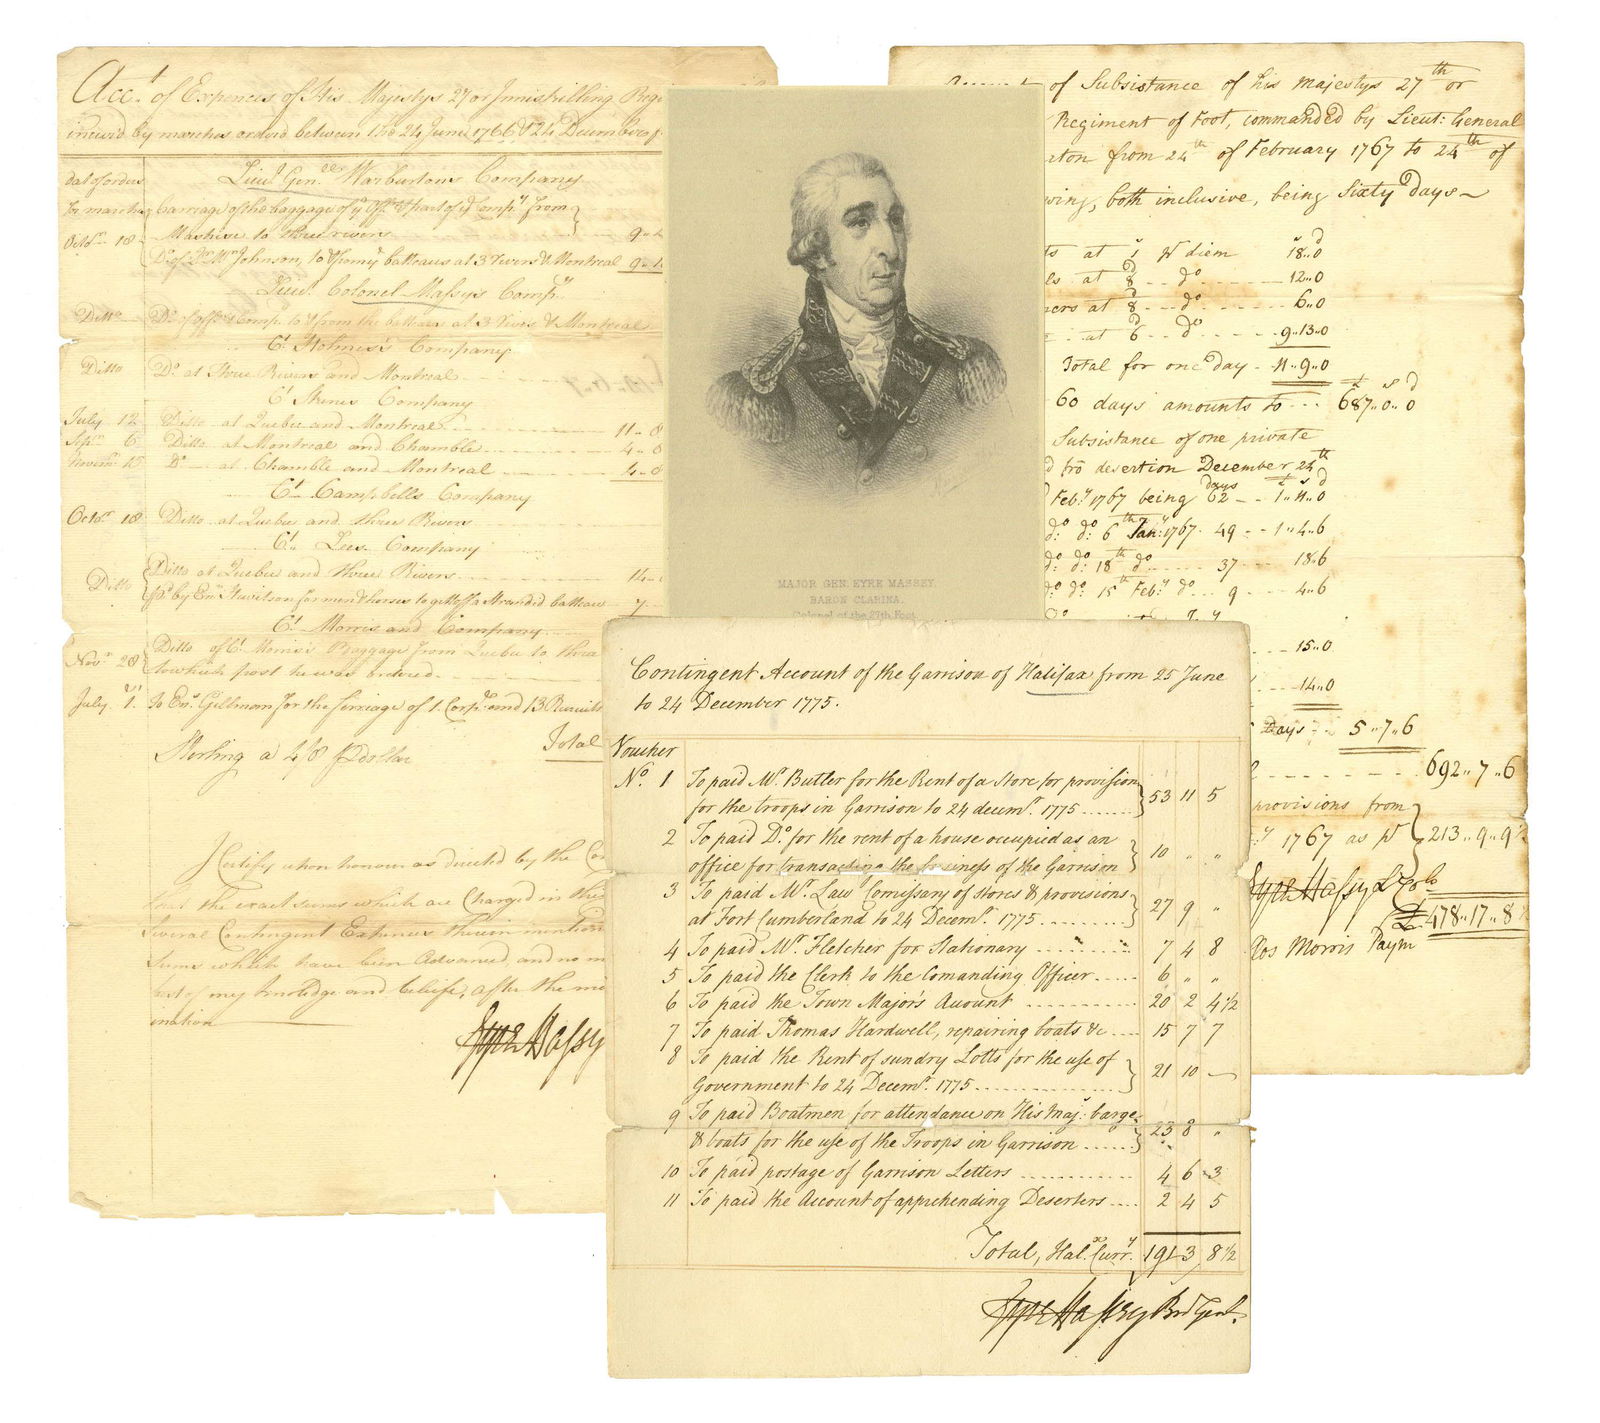 Acct. of Expences of His Majestys 27 or Inniskilling
incur'd by marches orderd between the 24 June 1766 & 24 December
dat of orders
for marching
Lieut. Genll. Warburtons Company
Carriage of the baggage of ye Offrs & part of ye Compy from
Octobr 18
Machise to three rivers
Do of Do Mr. Johnson, to & from ye batteaus at 3 Rivers & Montreal
Lieut. Colonel Massys Compy
Ditto Do of offrs & Comp. to & from the batteaus at 3 Rivers & Montreal
Ct. Holmes's Company
Ditto Do at Three Rivers and Montreal
Ct Skenes Company
July 12 Ditto at Quebec and Montreal 11 - 8
Sepr 6 Ditto at Montreal and Chamble 4 - 8
Novembr 15 Do at Chamble and Montreal 4 - 8
Ct Campbells Company
Octobr 18 Ditto at Quebec and three Rivers
Ct. Lees Company
Ditto Ditto at Quebec and three Rivers 14
pd by Ensn for men & horses to gett off a Stranded batteau 7
Ct. Morris and Company
Novr 28 Ditto of Ct Morris's Baggage from Quebec to three
to which post he was ordered
July 1. To Ens. Gillman for the ferriage of 1. Corpl and 13 Recruits
Sterling a 4/8 pr Dollar Total
I Certify upon honour as directed by the
that the exact sums which are Charged in this
Several Contingent Expences therein mention
Sums which have been Advanced, and no
best of my knowledge and beliefe, after the
ination
Eyre Massy
MAJOR GEN. EYRE MASSEY.
BARON CLARINA.
Colonel of the 27th Foot
Account of Subsistance of his Majestys 27th or
Regiment of Foot, commanded by Lieut: General
rton from 24th of February 1767 to 24th of
wing, both inclusive, being Sixty days
ts at 1s pr diem 18..0
ls at 8d do 12..0
mers at 8d do 6..0
at 6d do 9..13..0
Total for one day - 11..9..0
60 days amounts to 687..0..0
Subsistance of one private
d fro desertion December 24th
Feby 1767 being 62 days 1..11..0
do: do: 6th Jany: 1767. 49 1..4..6
do: do: 18th do 37 18..6
do: do: 15th Feby do 9 4..6
15..0
14..0
Days 5..7..6
692..7..6
provisions from
y 1767 as pr 213..9..9½
Eyre Massy Lt Colo
£ 478..17..8½
Ros Morris Paymr
Contingent Account of the Garrison of Halifax from 25 June
to 24 December 1775.
Voucher
No. 1 To paid Mr. Butler for the Rent of a Store for provision
for the troops in Garrison to 24 decemr. 1775 53 11 5
2 To paid Do. for the rent of a house occupied as an
office for transacting the business of the Garrison 10 " "
3 To paid Mr. Law Comissary of stores & provisions
at Fort Cumberland to 24 Decemr. 1775 27 9 "
4 To paid Mr. Fletcher for Stationary 7 4 8
5 To paid the Clerk to the Comanding Officer 6 " "
6 To paid the Town Major's Acount 20 2 4½
7 To paid Thomas Hardwell, repairing boats &c 15 7 7
8 To paid the Rent of sundry Lotts for the use of
Government to 24 Decemr. 1775 21 10 —
9 To paid Boatmen for attendance on His Majs. barge
& boats for the use of the Troops in Garrison 23 8 "
10 To paid postage of Garrison Letters 4 6 3
11 To paid the Account of apprehending Deserters 2 4 5
Total, Halx. Curry. 191 3 8½
Eyre Massey Brd Genl.